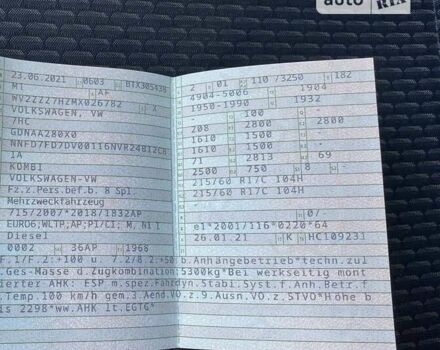 auto
RIA
23.06.2021 0603 BTX305438
M1 AF
WVZZZ7HZMX026782 X
VOLKSWAGEN, VW
7HC
GDNAA280X0
NNFD7FD7DV00116NVR24812C8
1A
KOMBI
VOLKSWAGEN-VW
Fz.z.Pers.bef.b. 8 Spl.
Mehrzweckfahrzeug
715/2007*2018/1832AP
EURO6;WLTP;AP;PI/CI; M, N1 I
Diesel
0002 36AP 1968
2 01 110 /3250 182
4904-5006 1904
1950-1990 1932
- 100 -
208 2800 2800
1610 1500 -
1610 1500 -
71 2813 69
2500 750 8 -
215/60 R17C 104H
215/60 R17C 104H
- 0/-
e1*2001/116*0220*64
26.01.21 K HC109231
F.1/F.2:+100 u. 7.2/8.2:+50 b.Anhängebetrieb*techn.zul
.Ges-Masse d.Zugkombination:5300kg*Bei werkseitig mont
ierter AHK: ESP m.spez.Fahrdyn.Stabi.Syst.f.Anh.Betr.f
.Temp.100 km/h gem.3.Aend.VO.z.9.Ausn.VO.z.STVO*Höhe b
is 2298*ww.AHK lt.EGTG*